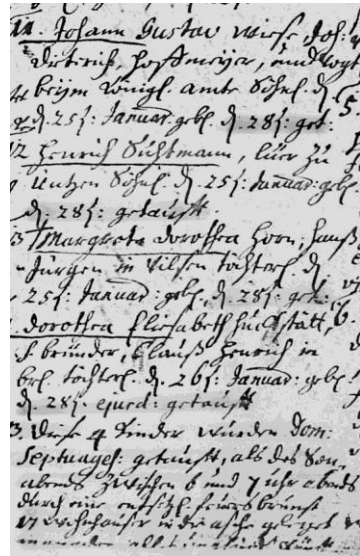 11. Johann Gustav Wiese, Joh:
Dieterich, Hoffmeyer, und Vogt
beym Königl. amte Söhnl. d.
d. 25t: Januar: gebl. d. 28t: get:
12 Henrich Suhtmann, Lüer zu
Üntzen Söhnl. d. 25t: Januar: gebl.
d. 28t: getaufft
13 Margreta Dorothea Horn, Hanß
Jürgen in Vilsen töchterl. d.
25t: Januar: gebl. d. 28t: get:
Dorothea Eliesabeth Huckstätt,
Clauß Henrich in
töchterl. d. 26t: Januar: gebl.
d. 28t. ejusd: getaufft
Diese 4 Kinder wurden Dom:
Septuages: getaufft, als des Son,
abends zwischen 6 und 7 uhr abends
durch eine entsetzl. feuersbrunst
17 wohnhäuser in die asche geleget